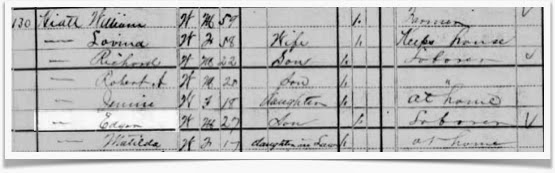 130 Hiatt William W M 59 1 Farmer
— Lovina W F 58 Wife 1 Keeps house
— Richard W M 22 Son 1 Laborer
— Robert A W M 20 Son 1 "
— Jennie W F 18 daughter 1 at home
— Edgar W M 27 Son 1 Laborer
— Matilda W F 17 daughter in Law 1 at home